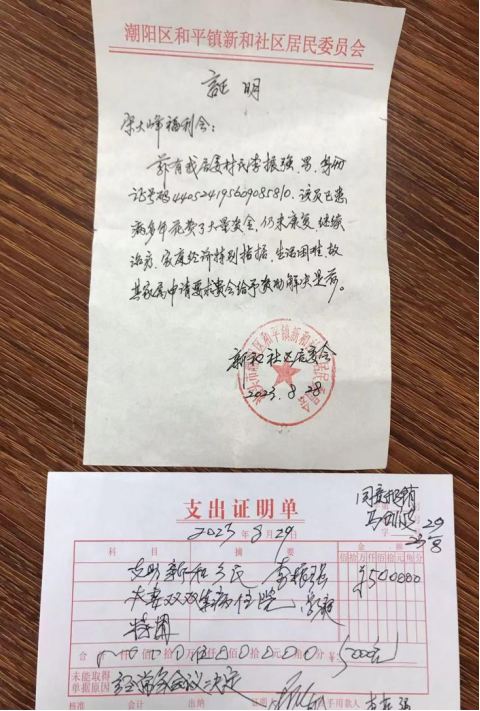 潮阳区和平镇新和社区居民委员会
証明
宋大峰福利会：
兹有我居委村民李振强，男，身份
证号码440524195609085810，该人已患
病多年花费了大量资金，仍未康复，继续
治疗，家庭经济特别拮据，生活困难，故
其家属申请要求贵会给予资助解决是荷。
新和社区居委会
2023.8.28
同意报销
29/8
支出证明单
2023年8月29
科目 摘要 金额
佰拾万仟佰拾元角分
支助新和乡民 李振强 ¥500000
夫妻双双生病住院
特困
合 仟佰拾万仟佰拾元角分 ¥ 5000元
未能取得
单据原因 经常务会议决定
核准 会计 出纳 手用款人